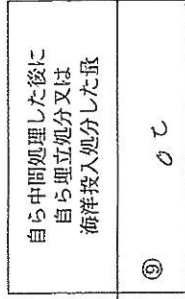 自ら中間処理した後に
自ら埋立処分又は
海洋投入処分した量
⑨
0 t